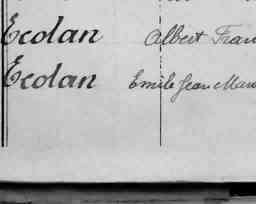 Ecolan Albert Fran
Ecolan Emile Jean Mau